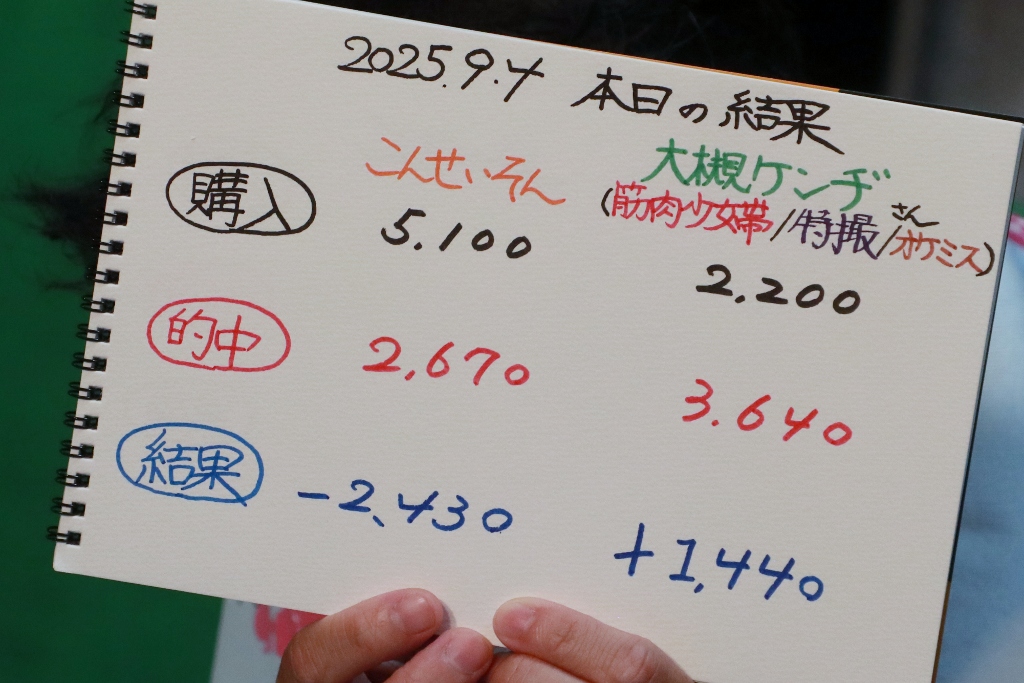 2025.9.4 本日の結果
こんせいそん
大槻ケンヂさん
(筋肉少女帯/特撮/オケミス)
購入
5.100
2.200
的中
2,670
3.640
結果
-2,430
+1,440